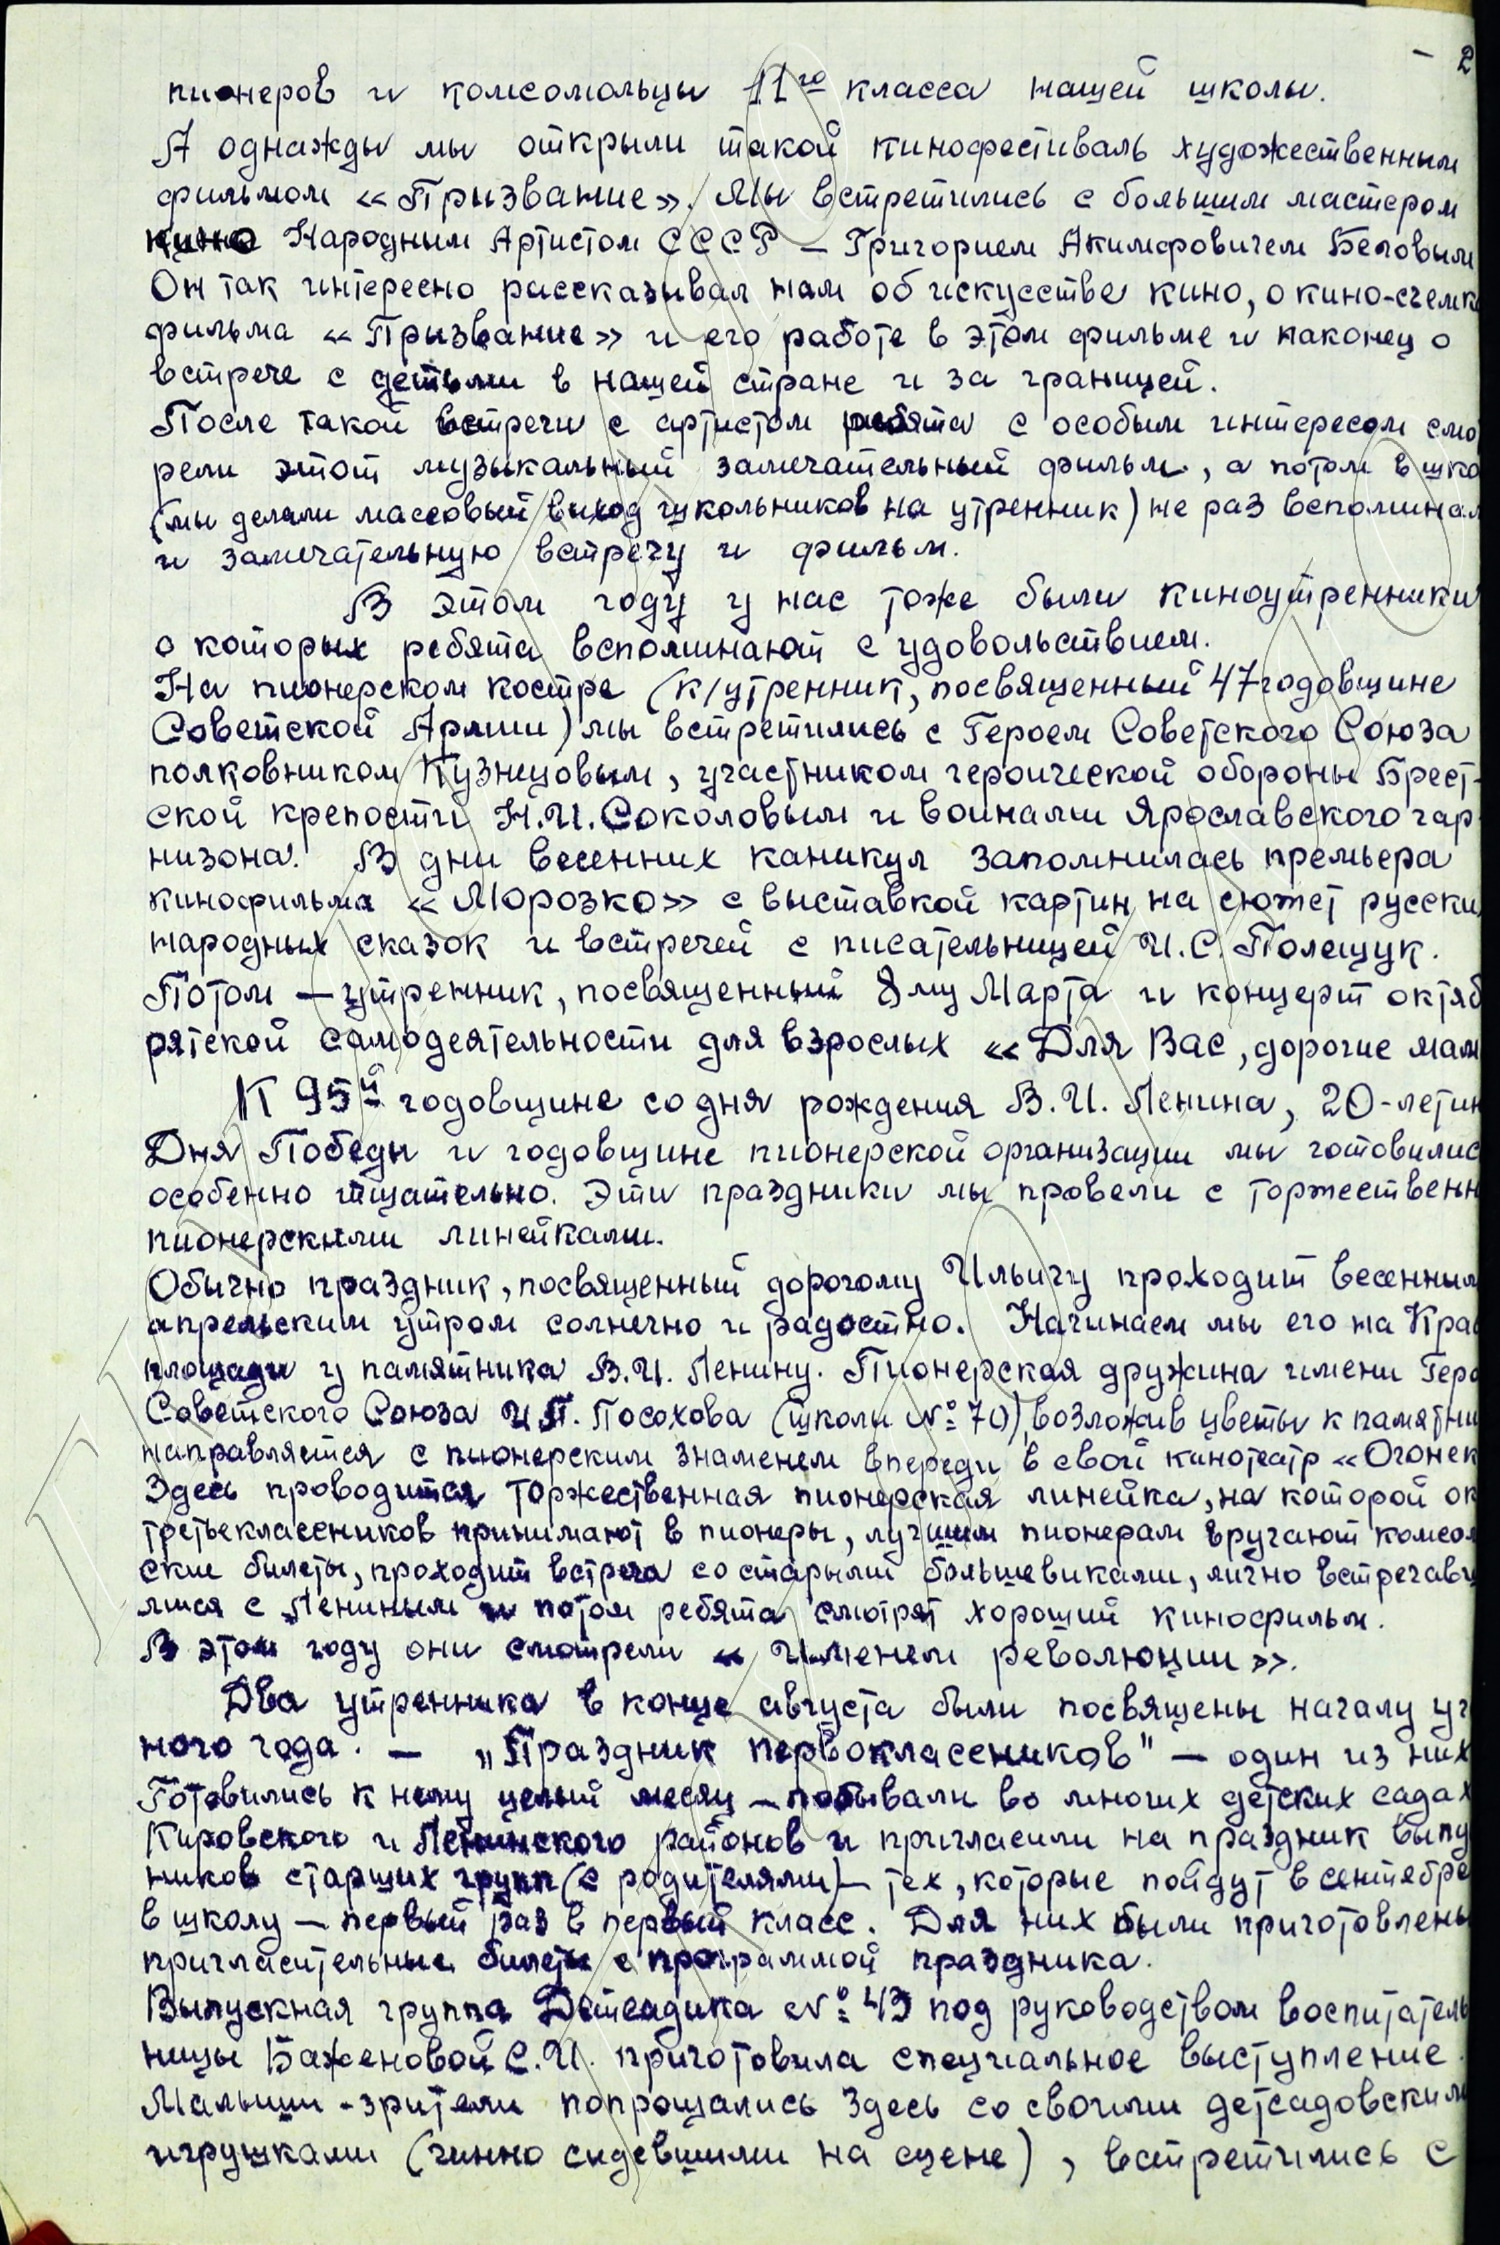 - 2
пионеров и комсомольцы 11го класса нашей школы.
А однажды мы открыли такой кинофестиваль художественным
фильмом «Призвание». Мы встретились с большим мастером
кино Народным Артистом СССР – Григорием Акимфовичем Беловым
Он так интересно рассказывал нам об искусстве кино, о кино-съемк
фильма «Призвание» и его работе в этом фильме и наконец о
встрече с детьми в нашей стране и за границей.
После такой встречи с артистом ребята с особым интересом смо
рели этот музыкальный замечательный фильм, а потом в шко
(мы делали массовый выход школьников на утренник) не раз вспоминал
и замечательную встречу и фильм.
В этом году у нас тоже были киноутренники
о которых ребята вспоминают с удовольствием.
На пионерском костре (к/утренник, посвященный 47 годовщине
Советской Армии) мы встретились с Героем Советского Союза
полковником Кузнецовым, участником героической обороны Брест-
ской крепости Н.И. Соколовым и воинами Ярославского гар
низона. В дни весенних каникул запомнилась премьера
кинофильма «Морозко» с выставкой картин на сюжет русски
народных сказок и встречей с писательницей И.С. Полещук.
Потом – утренник, посвященный 8му Марта и концерт октяб
рятской самодеятельности для взрослых «Для Вас, дорогие мам
К 95й годовщине со дня рождения В.И. Ленина, 20-лети
Дня Победы и годовщине пионерской организации мы готовилис
особенно тщательно. Эти праздники мы провели с торжественн
пионерскими линейками.
Обычно праздник, посвященный дорогому Ильичу проходит весенним
апрельским утром солнечно и радостно. Начинаем мы его на Крас
площади у памятника В.И. Ленину. Пионерская дружина имени Геро
Советского Союза И.П. Посохова (школы №70), возложив цветы к памятни
направляется с пионерским знаменем впереди в свой кинотеатр «Огонек
Здесь проводится торжественная пионерская линейка, на которой ок
третьеклассников принимают в пионеры, лучшим пионерам вручают комсом
ские билеты, проходит встреча со старыми большевиками, лично встречавш
мися с Лениным и потом ребята смотрят хороший кинофильм.
В этом году они смотрели «Именем революции».
Два утренника в конце августа были посвящены началу уч
ного года. – „Праздник первоклассников" – один из них
Готовились к нему целый месяц – побывали во многих детских садах
Кировского и Ленинского районов и пригласили на праздник выпу
ников старших групп (с родителями) – тех, которые пойдут в сентябре
в школу – первый раз в первый класс. Для них были приготовлены
пригласительные билеты с программой праздника.
Выпускная группа Детсадика №43 под руководством воспитатель
ницы Баженовой С.И. приготовила специальное выступление.
Малыши-зрители попрощались здесь со своими детсадовским
игрушками (чинно сидевшими на сцене), встретились с